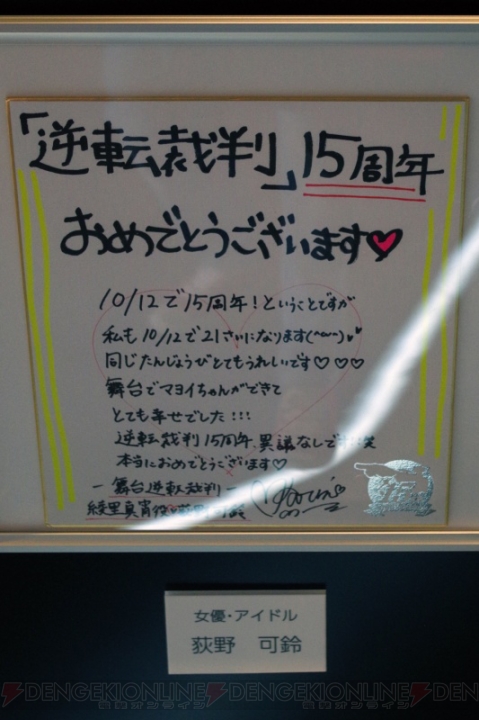 「逆転裁判」15周年
おめでとうございます♥
10/12で15周年!ということですが
私も10/12で21さいになります(^ω^)♥♥
同じたんじょうびとてもうれしいです♡♡♡
舞台でマヨイちゃんができて
とても幸せでした!!!
逆転裁判15周年、異議なしです!笑
本当におめでとうございます♡
－舞台逆転裁判－
綾里真宵役
Karin
女優・アイドル
荻野 可鈴
DENGEKIONLINE DENGEKIONLINE DENGEKIONLINE